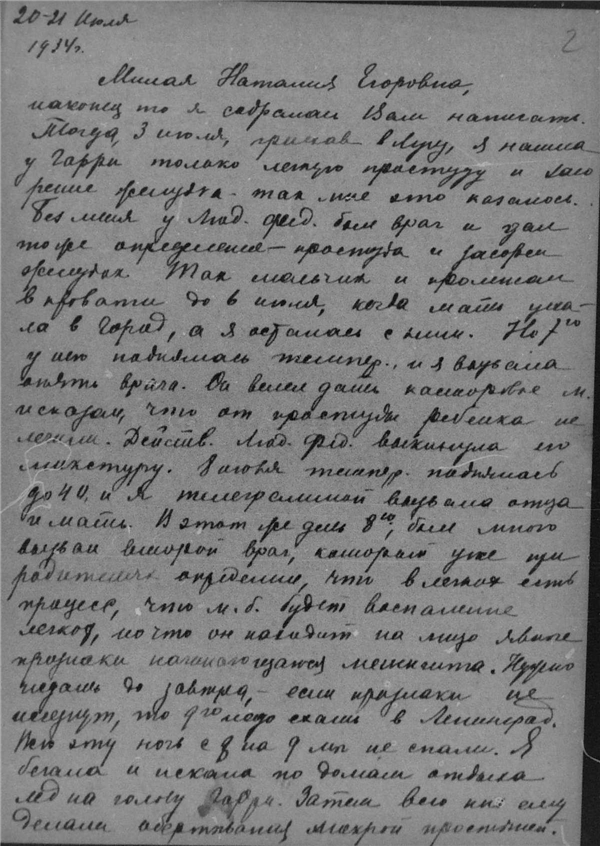 20-21 Июля
1934г.
2
Милая Наталия Егоровна,
наконец то я собралась Вам написать.
Тогда, 3 июля, приехав в Лугу, я нашла
у Гарри только легкую простуду и засо
рение желудка - так мне это казалось.
Без меня у Люд. Фед. был врач и дал
то же определение - простуда и засорен
желудок. Так мальчик и пролежал
в кровати до 6 июля, когда мать уеха-
ла в город, а я осталась с ним. Но 7го
у него поднялась темпер., и я вызвала
опять врача. Он велел дать касторовое м.
и сказал, что от простуды ребенка не
лечили. Действ. Люд. Фед. выкинула его
микстуру. 8 июля темпер. поднялась
до 40, и я телеграммой вызвала отца
и мать. В этот же день 8го, был мною
вызван второй врач, который уже при
родителях определил, что в легких есть
процесс, что м.б. будет воспаление
легких, но что он находит на лицо явные
признаки начинающегося менингита. Нужно
ждать до завтра, - если признаки не
исчезнут, то 9го надо ехать в Ленинград.
Всю эту ночь с 8 на 9 мы не спали. Я
бегала и искала по домам отдыха
лед на голову Гарри. Затем всю ночь ему
делали обертывания мокрой простыней.